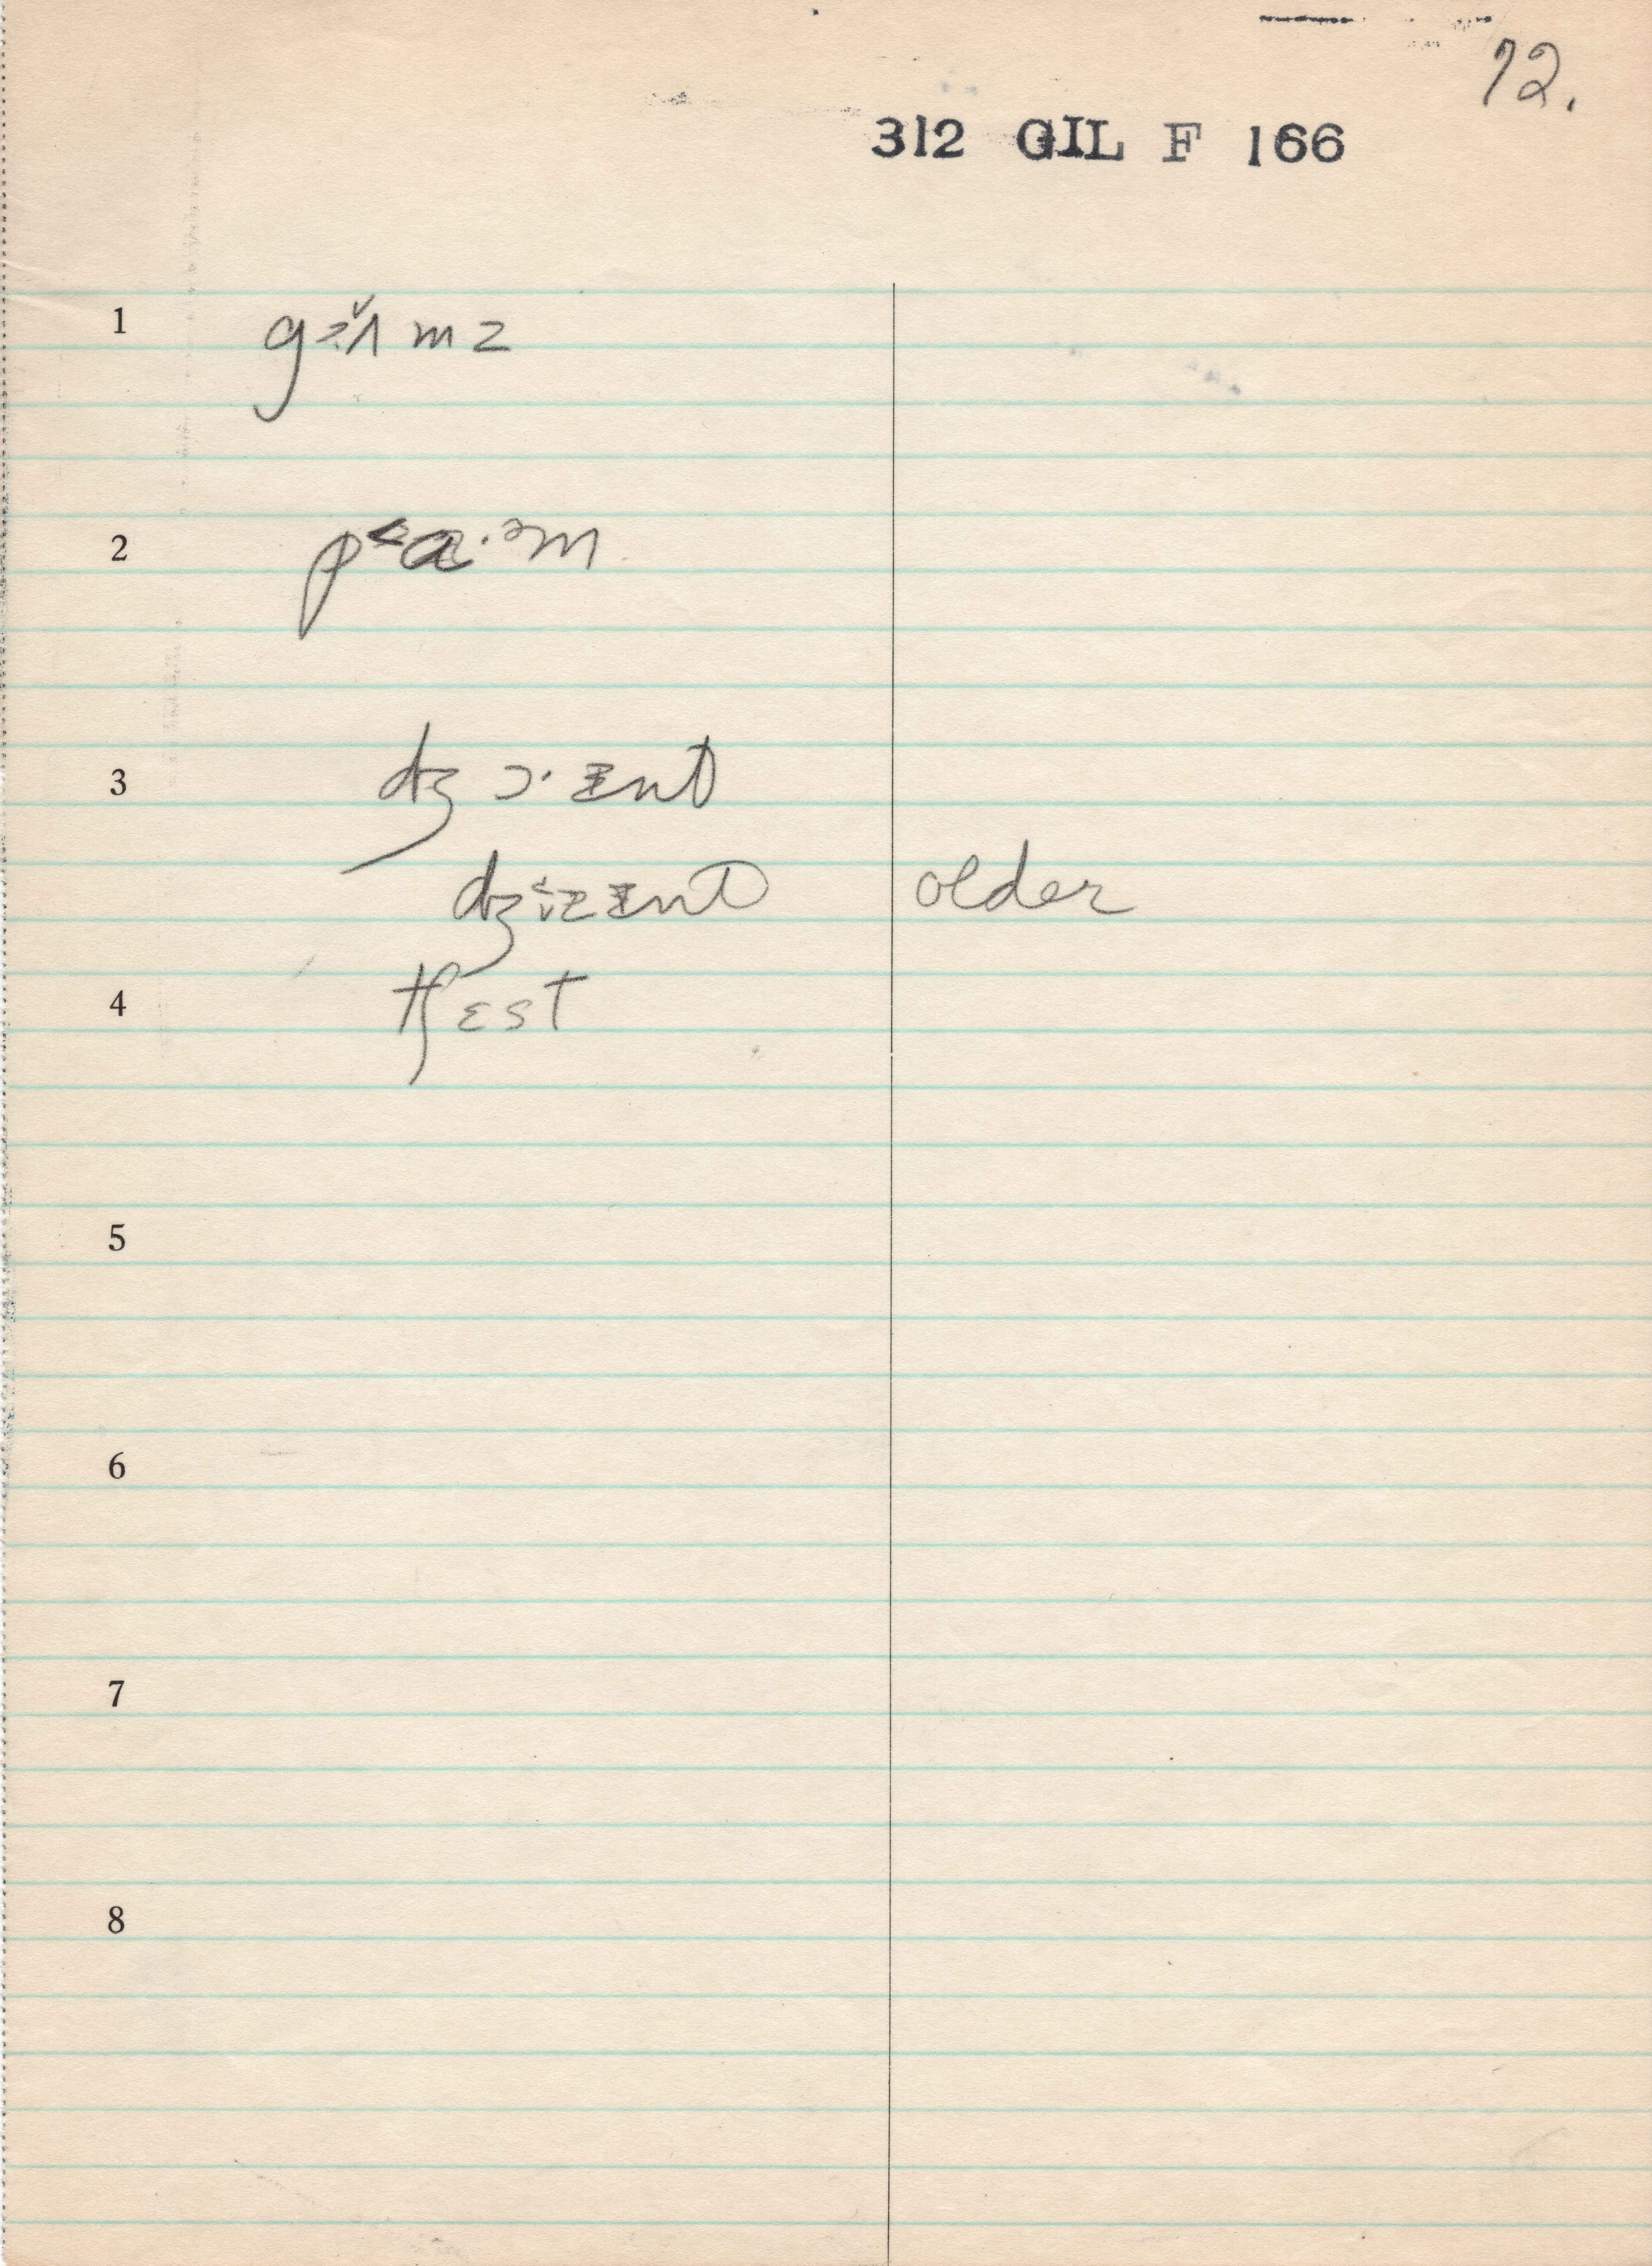 72.
312 GIL F 166
1 gɜɪ̆ʌmz
2 pʻɑ·ᵊm
3 dʒɔ·ᵻnt
dʒɜɪ̆ᵻnt older
4 tʃɛst
5
6
7
8